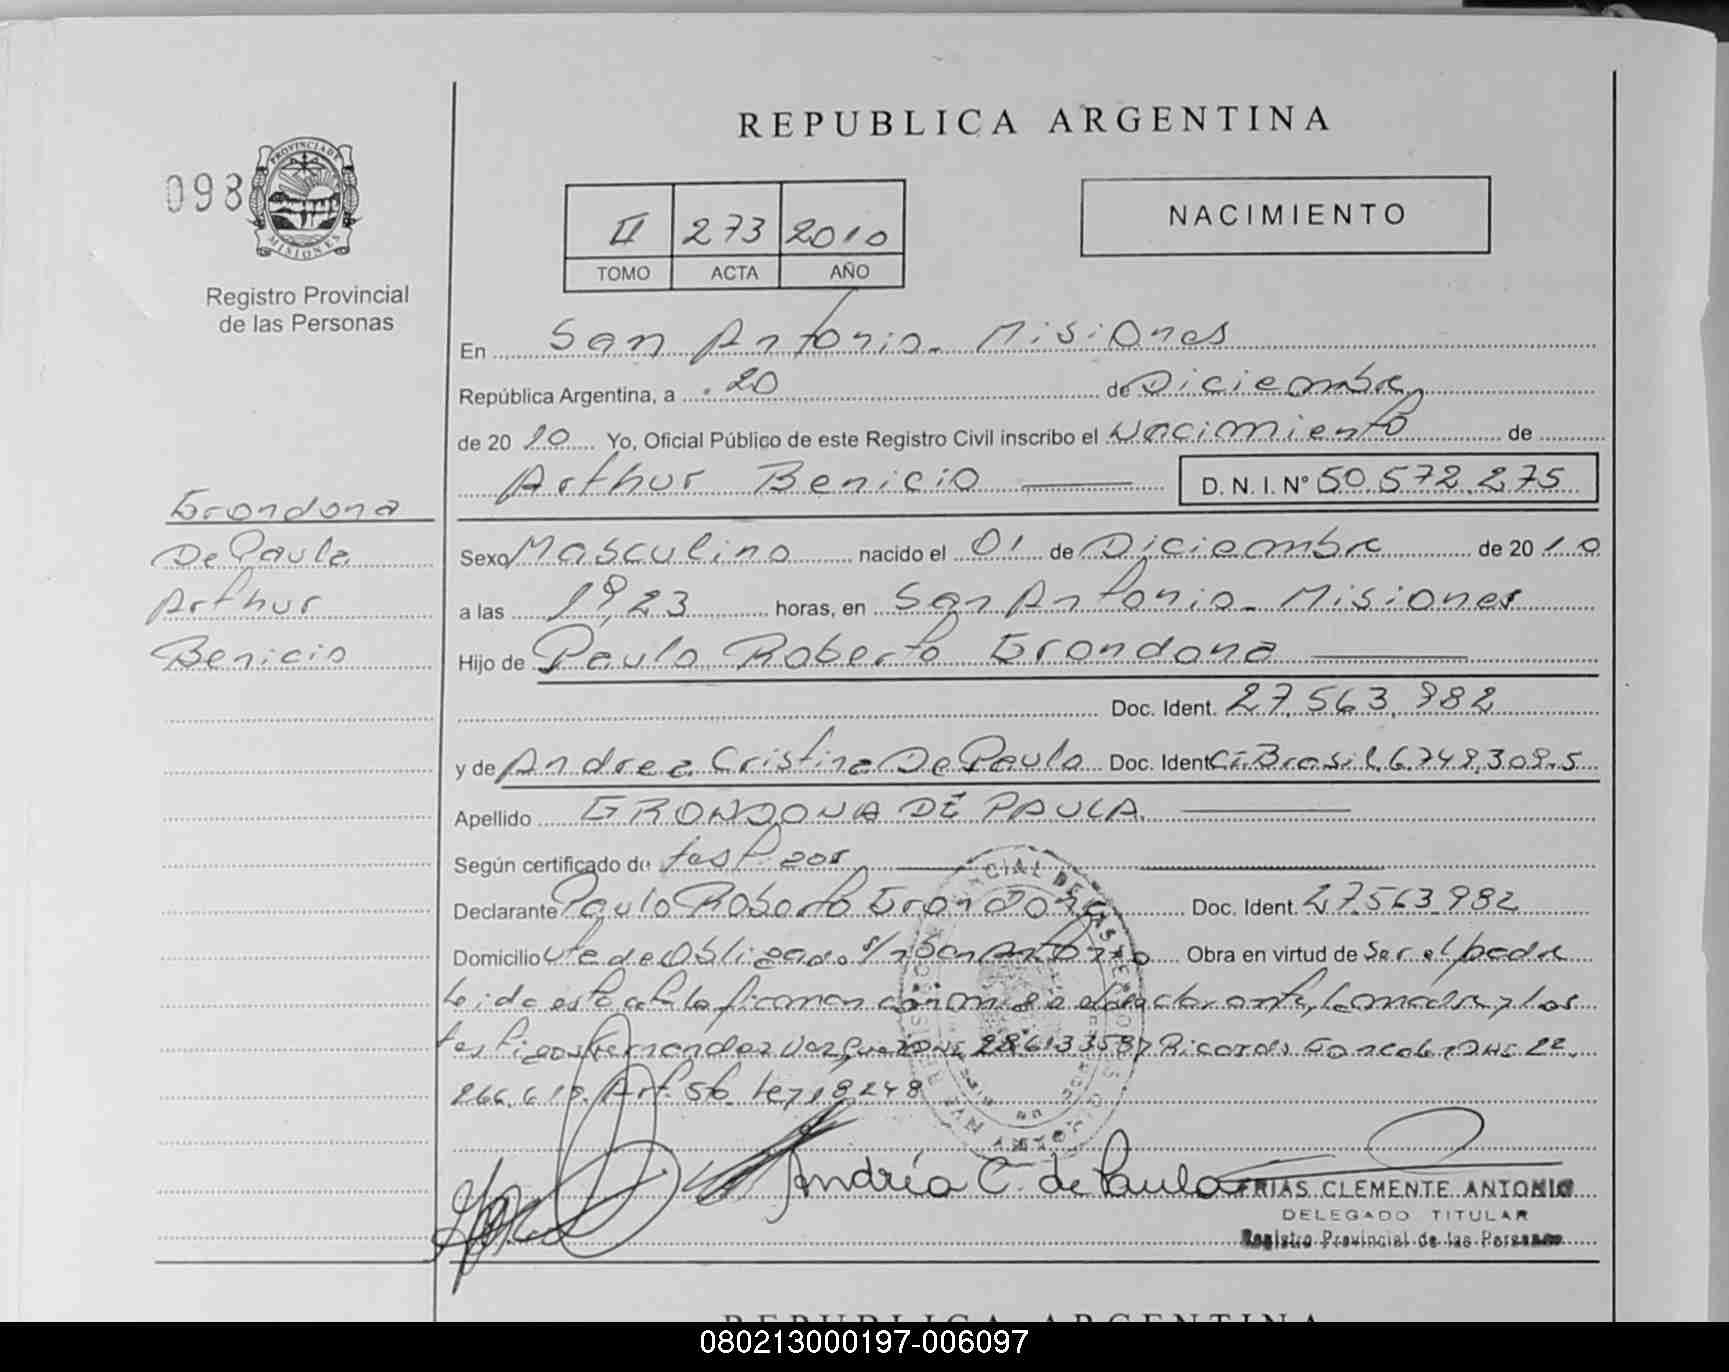 REPUBLICA ARGENTINA
098
PROVINCIA DE
MISIONES
Registro Provincial
de las Personas
II 273 2010
TOMO ACTA AÑO
NACIMIENTO
En San Antonio - Misiones
República Argentina, a 20 de Diciembre
de 20 10 Yo, Oficial Público de este Registro Civil inscribo el Nacimiento de
Arthur Benicio D. N. I. N° 50.572.275
Grondona
De Paula
Arthur
Benicio
Sexo Masculino nacido el 01 de Diciembre de 20 10
a las 19,23 horas, en San Antonio - Misiones
Hijo de Paulo Roberto Grondona
Doc. Ident. 27.563.982
y de Andrea Cristina De Paula Doc. Ident C.I. Brasil 6.749.309-5
Apellido GRONDONA DE PAULA
Según certificado de testigos
Declarante Paulo Roberto Grondona Doc. Ident. 27.563.982
Domicilio Vte de Obligado s/n San Antonio Obra en virtud de Ser el padre
Leida esta acta la firman conmigo el declarante, la madre y los
testigos Hernandez DNI 28613358 y Ricardo DNI 22.
266.618. Art. 56 Ley 18248
Andréa C. de Paula
FRIAS CLEMENTE ANTONIO
DELEGADO TITULAR
Registro Provincial de las Personas
REPUBLICA ARGENTINA
080213000197-006097